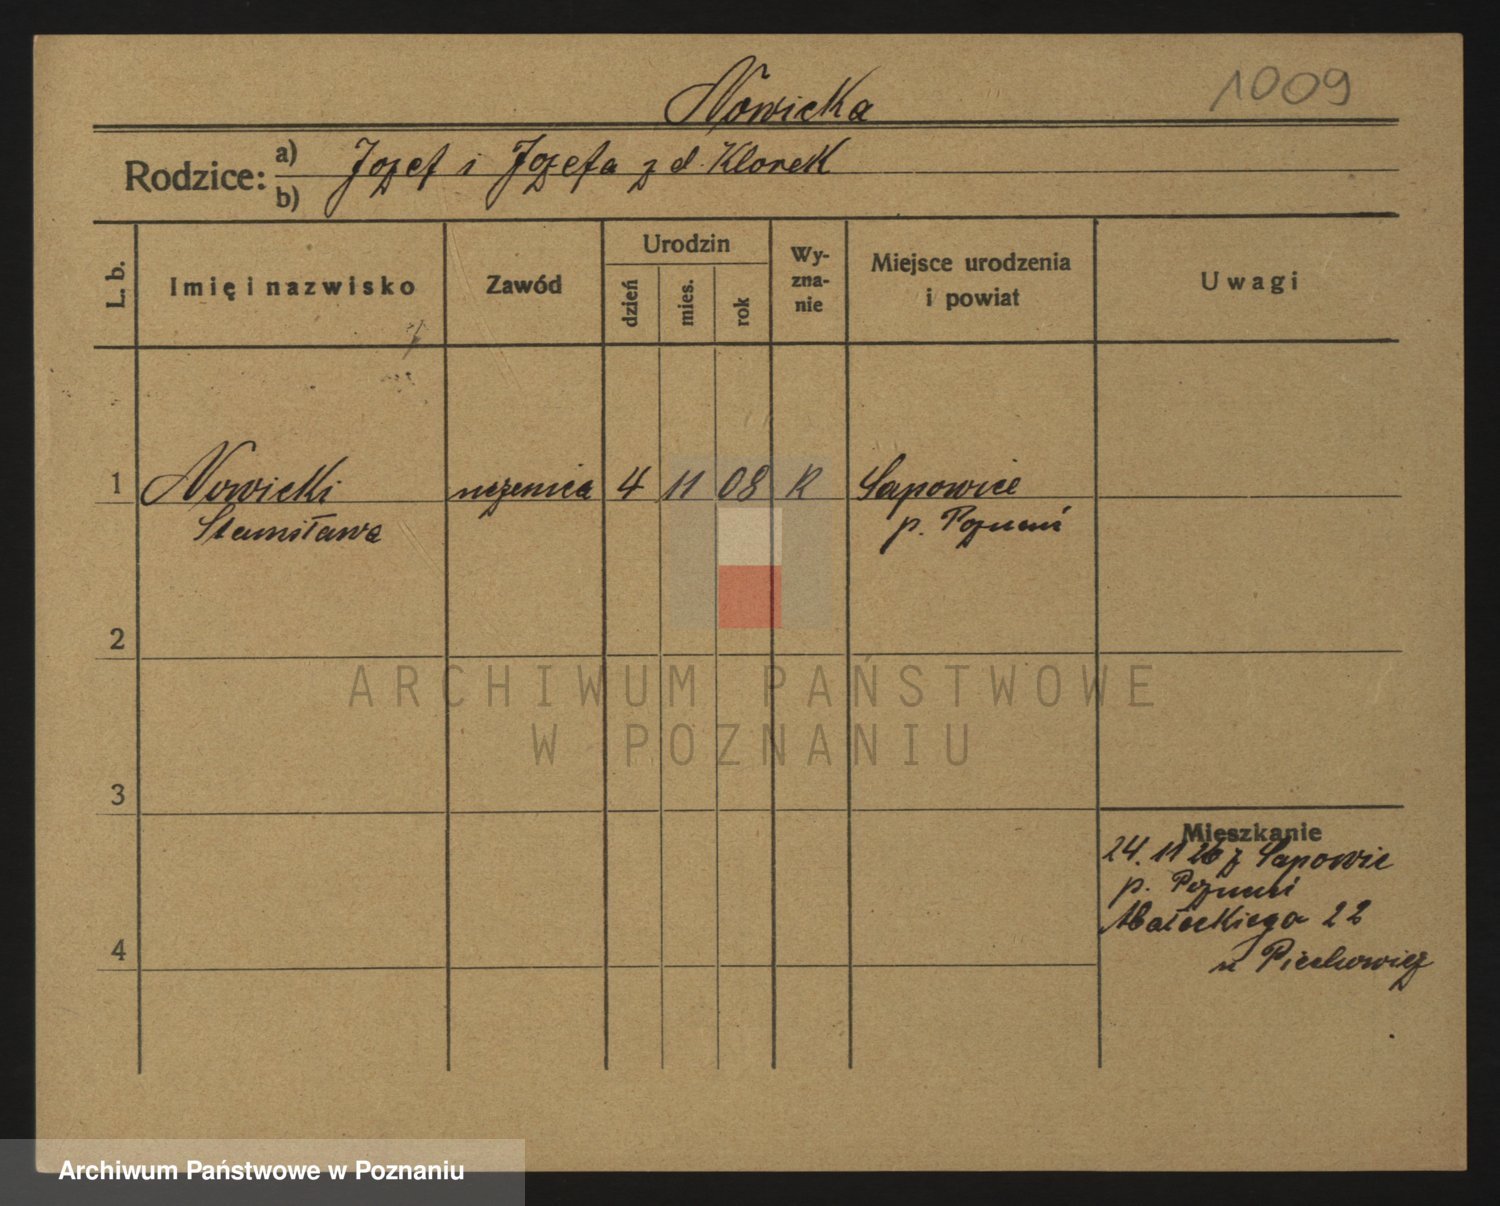 Nowicka
1009
Rodzice: a) b)
Jozef i Jozefa z d. Klorek
L. b.
Imię i nazwisko
Zawód
Urodzin
dzień
mies.
rok
Wy-
zna-
nie
Miejsce urodzenia
i powiat
Uwagi
1 Nowicki uczenica 4 11 08 R Sapowice
Stanisława p. Poznań
2
ARCHIWUM PAŃSTWOWE
W POZNANIU
3
Mieszkanie
24. 11 26 z Sapowic
p. Poznań
Małeckiego 22
4
u Piechowicz
Archiwum Państwowe w Poznaniu